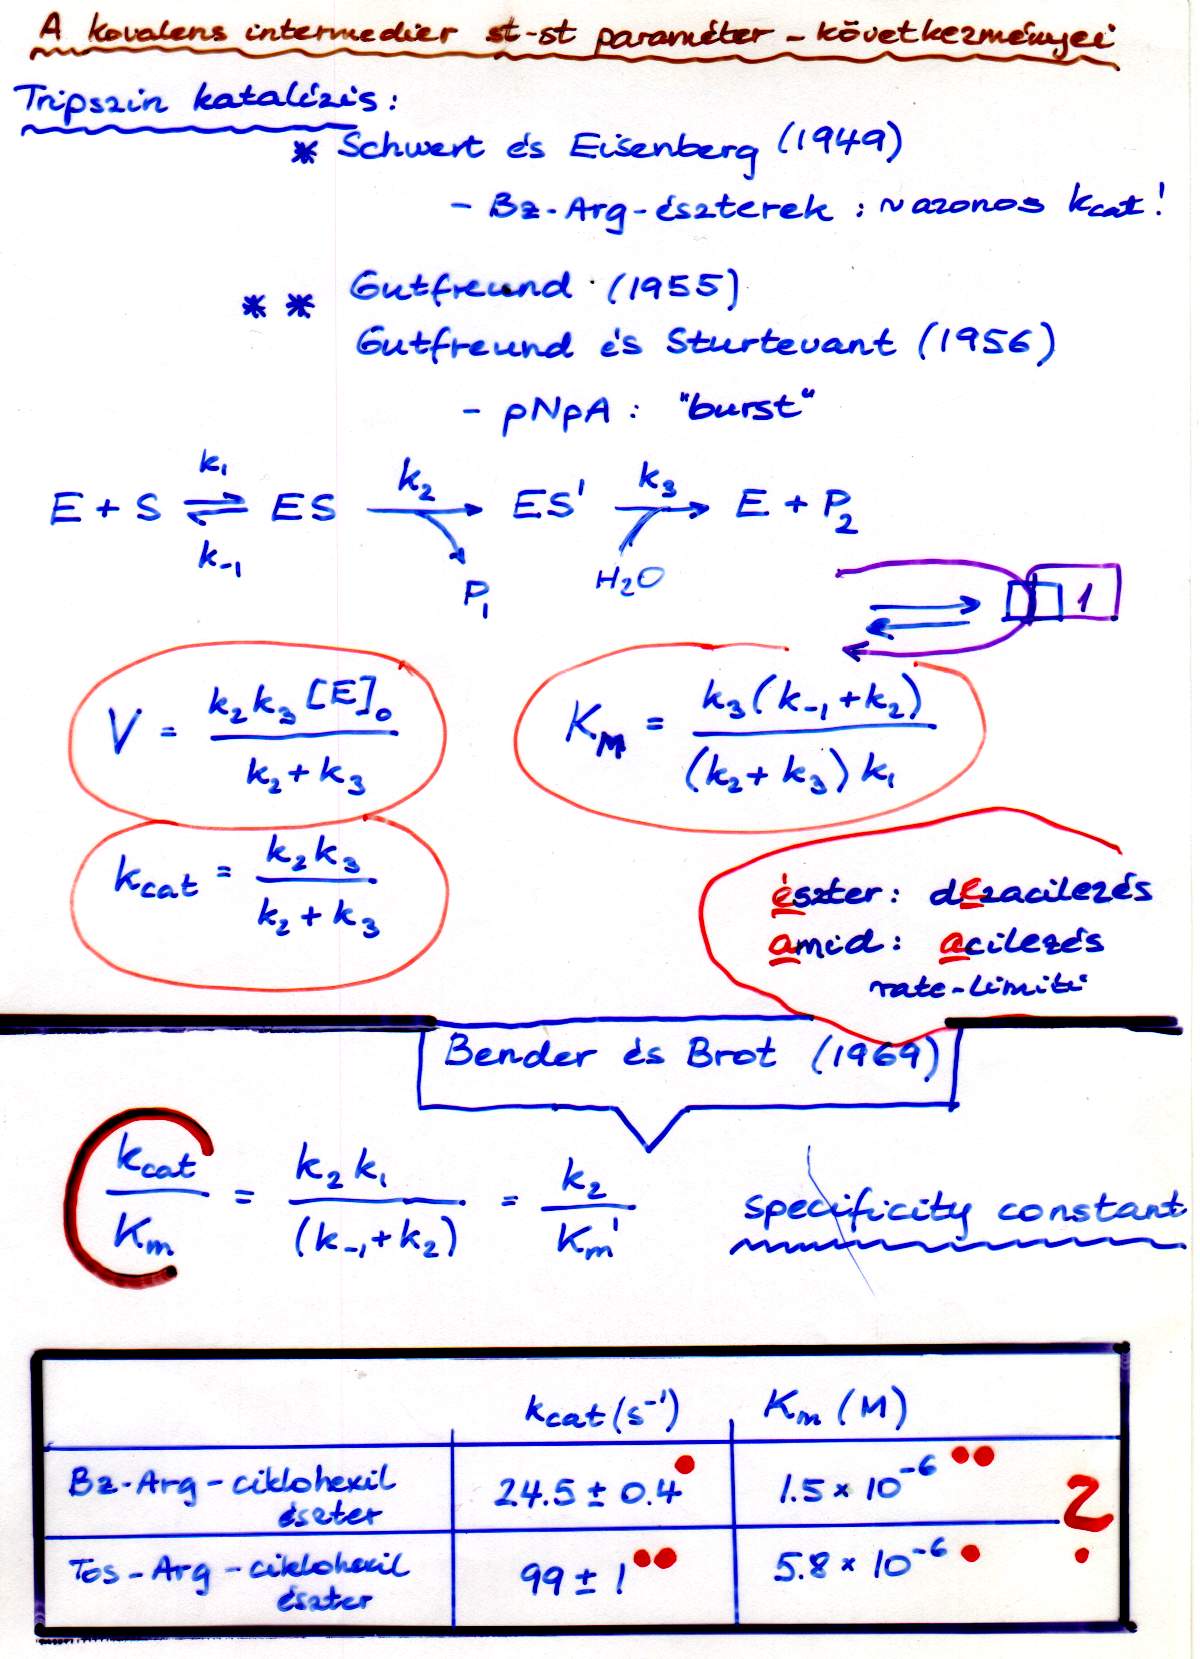 A kovalens intermedier st-st paraméter - következményei
Tripszin katalízis:
* Schwert és Eisenberg (1949)
- Bz-Arg-észterek : ~ azonos kcat!
* * Gutfreund (1955)
Gutfreund és Sturtevant (1956)
- pNpA : "burst"
E + S ⇌ ES → ES' → E + P₂
k₁ k₂ k₃
k₋₁ P₁ H₂O
1
V = k₂k₃[E]₀ / (k₂ + k₃)
K_M = k₃(k₋₁+k₂) / (k₂+k₃)k₁
kcat = k₂k₃ / (k₂ + k₃)
észter: dezacilezés
amid: acilezés
rate-limiti
Bender és Brot (1969)
kcat / Km = k₂k₁ / (k₋₁+k₂) = k₂ / Km'
specificity constant
kcat (s⁻¹) Km (M)
Bz-Arg-ciklohexil észter 24.5 ± 0.4 1.5 × 10⁻⁶
Tos-Arg-ciklohexil észter 99 ± 1 5.8 × 10⁻⁶
?